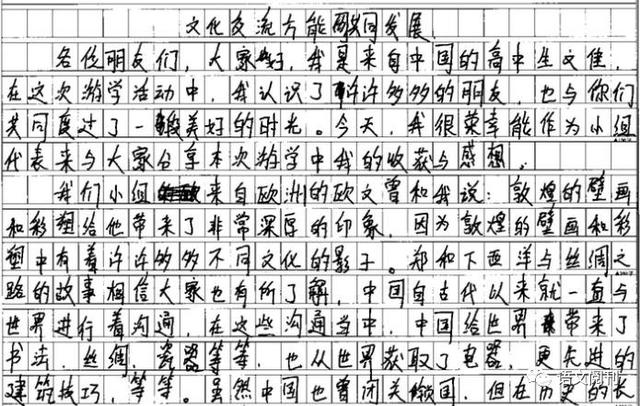 文化交流方能共同发展
各位朋友们，大家好，我是来自中国的高中生文佳，
在这次游学活动中，我认识了许许多多的朋友，也与你们
共同度过了一段美好的时光。今天，我很荣幸能作为小组
代表来与大家分享本次游学中我的收获与感想。
我们小组来自欧洲的欧文曾和我说：敦煌的壁画
和彩塑给他带来了非常深厚的印象，因为敦煌的壁画和彩
塑中有着许许多多不同文化的影子。郑和下西洋与丝绸之
路的故事相信大家也有所了解，中国自古代以来就一直与
世界进行着沟通，在这些沟通当中，中国给世界带来了
书法，丝绸，瓷器等等，也从世界获取了电器，更先进的
建筑技巧，等等。虽然中国也曾闭关锁国，但在历史的长
语文阅刊